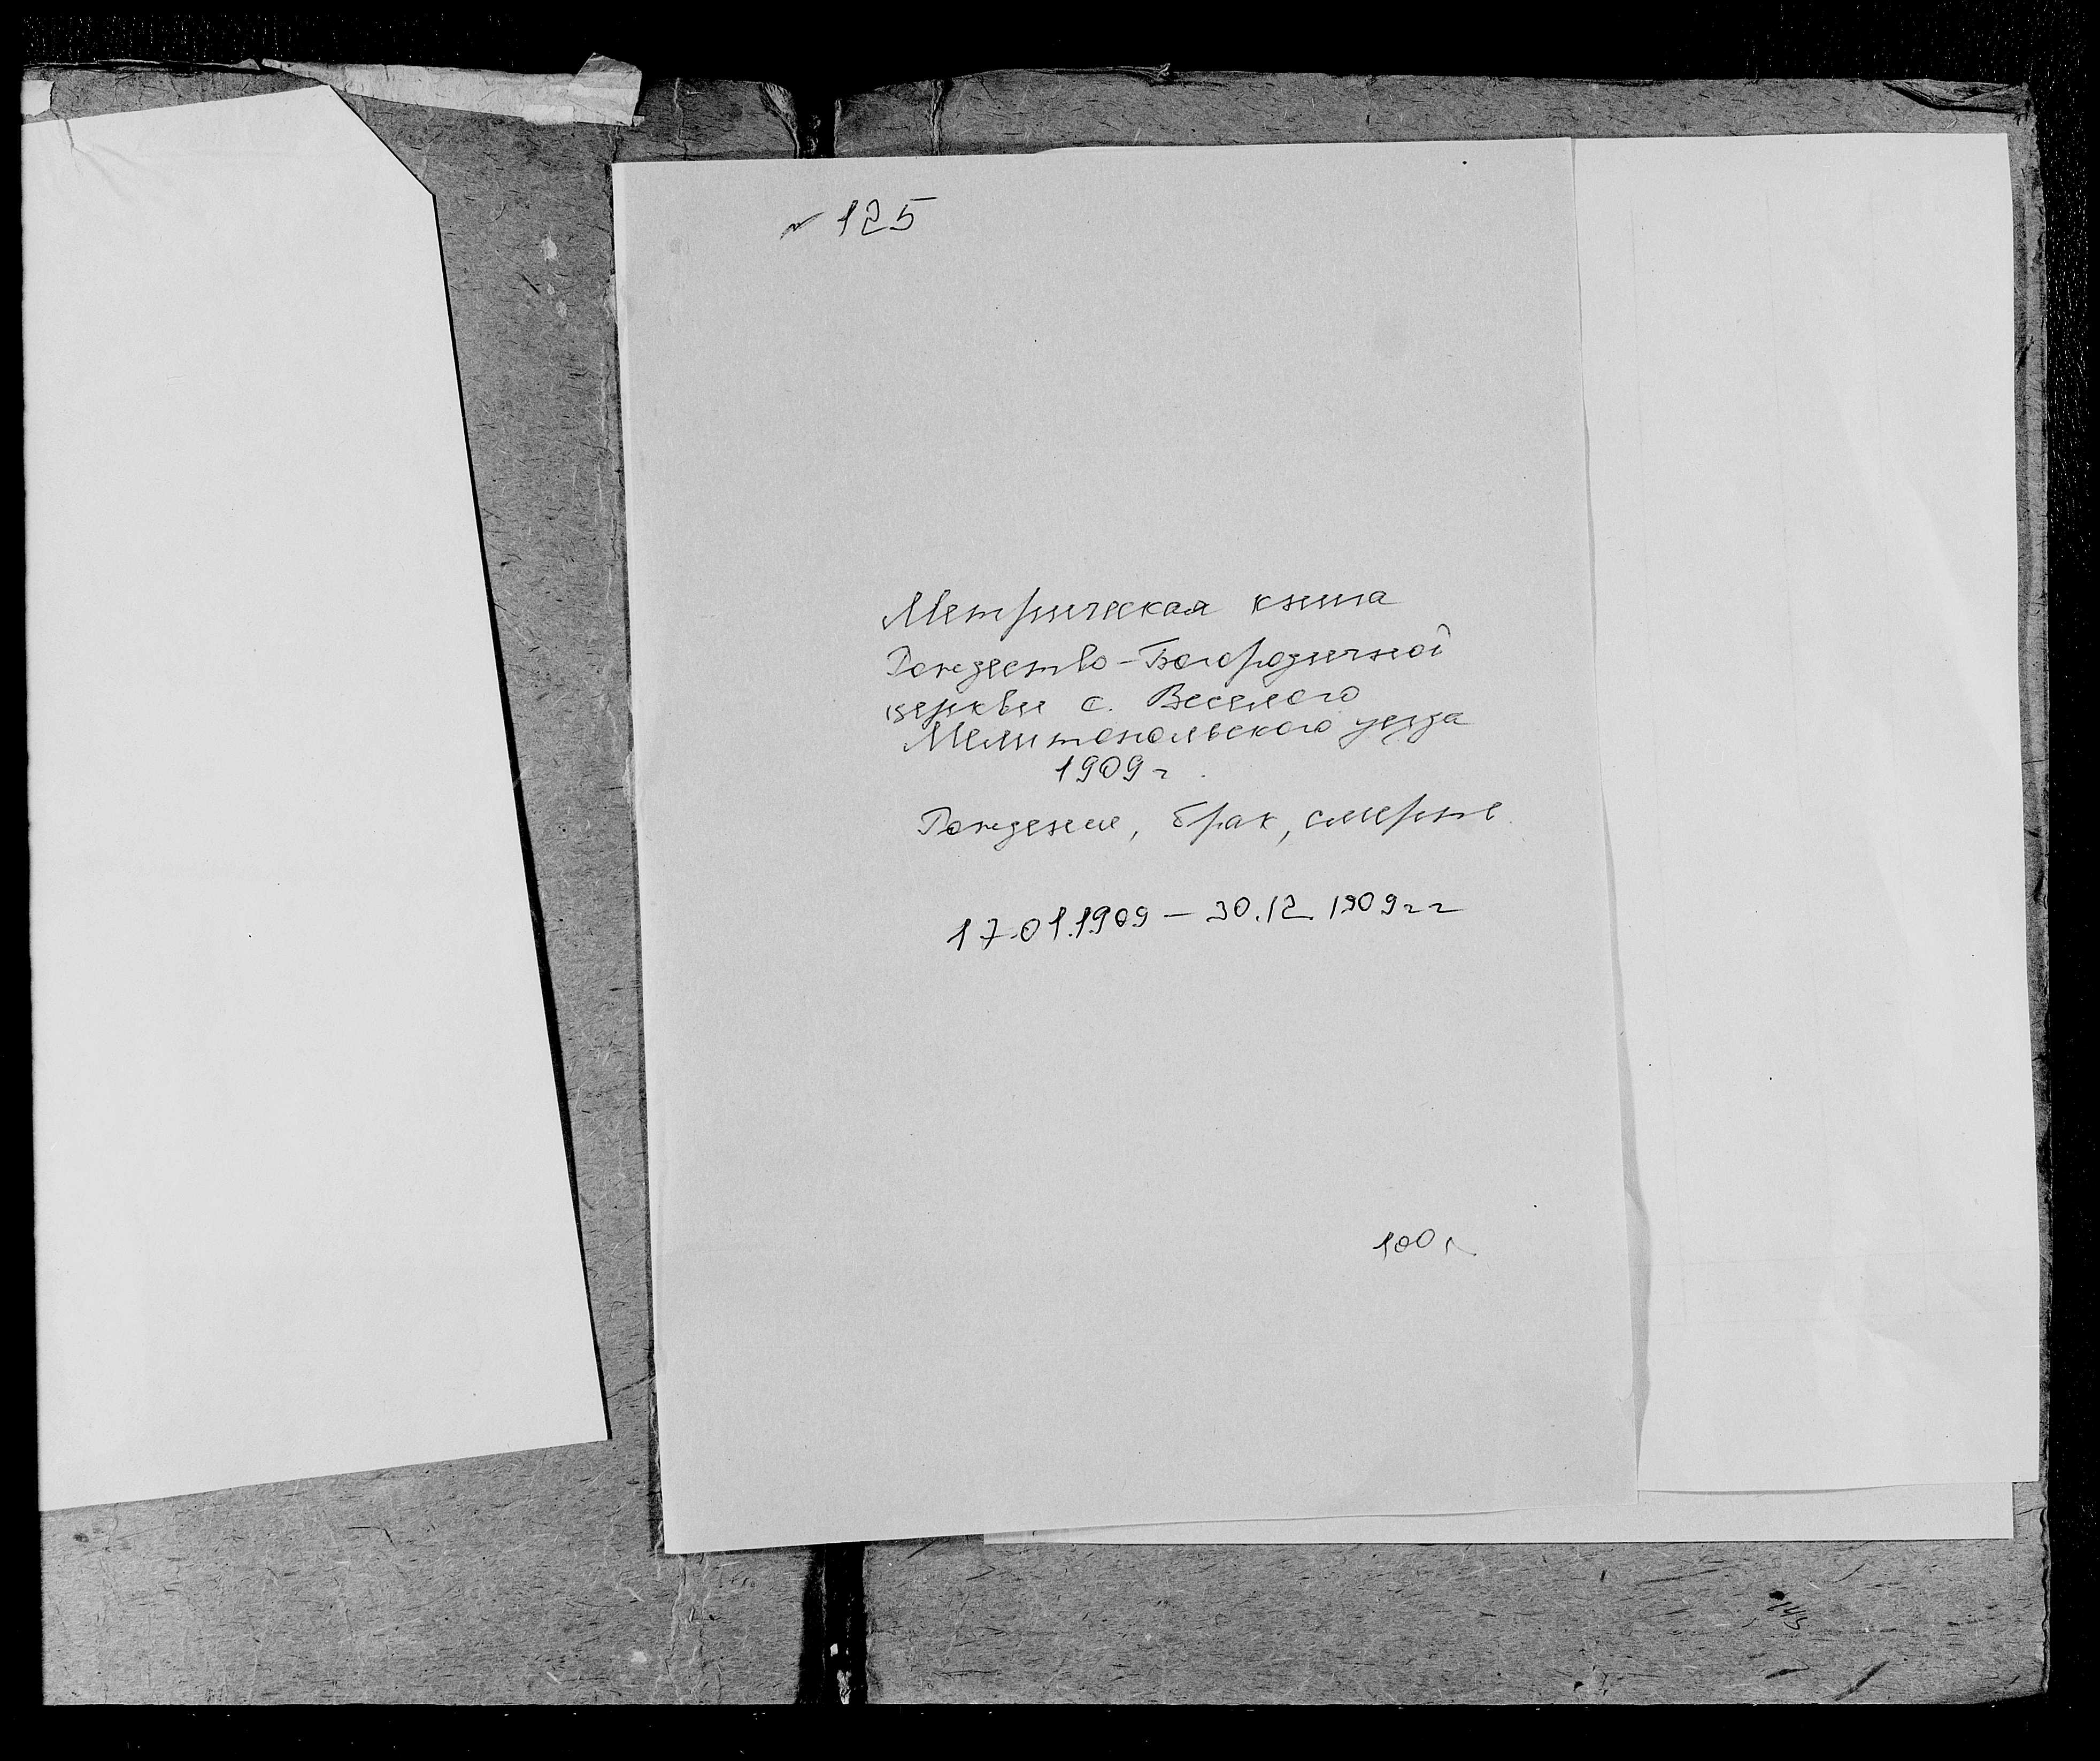 125
Метрическая книга
Рождество-Богородичной
церкви с. Веселого
Мелитопольского уезда
1909 г.
Рождение, брак, смерть
17.01.1909 — 30.12.1909 гг
100 л